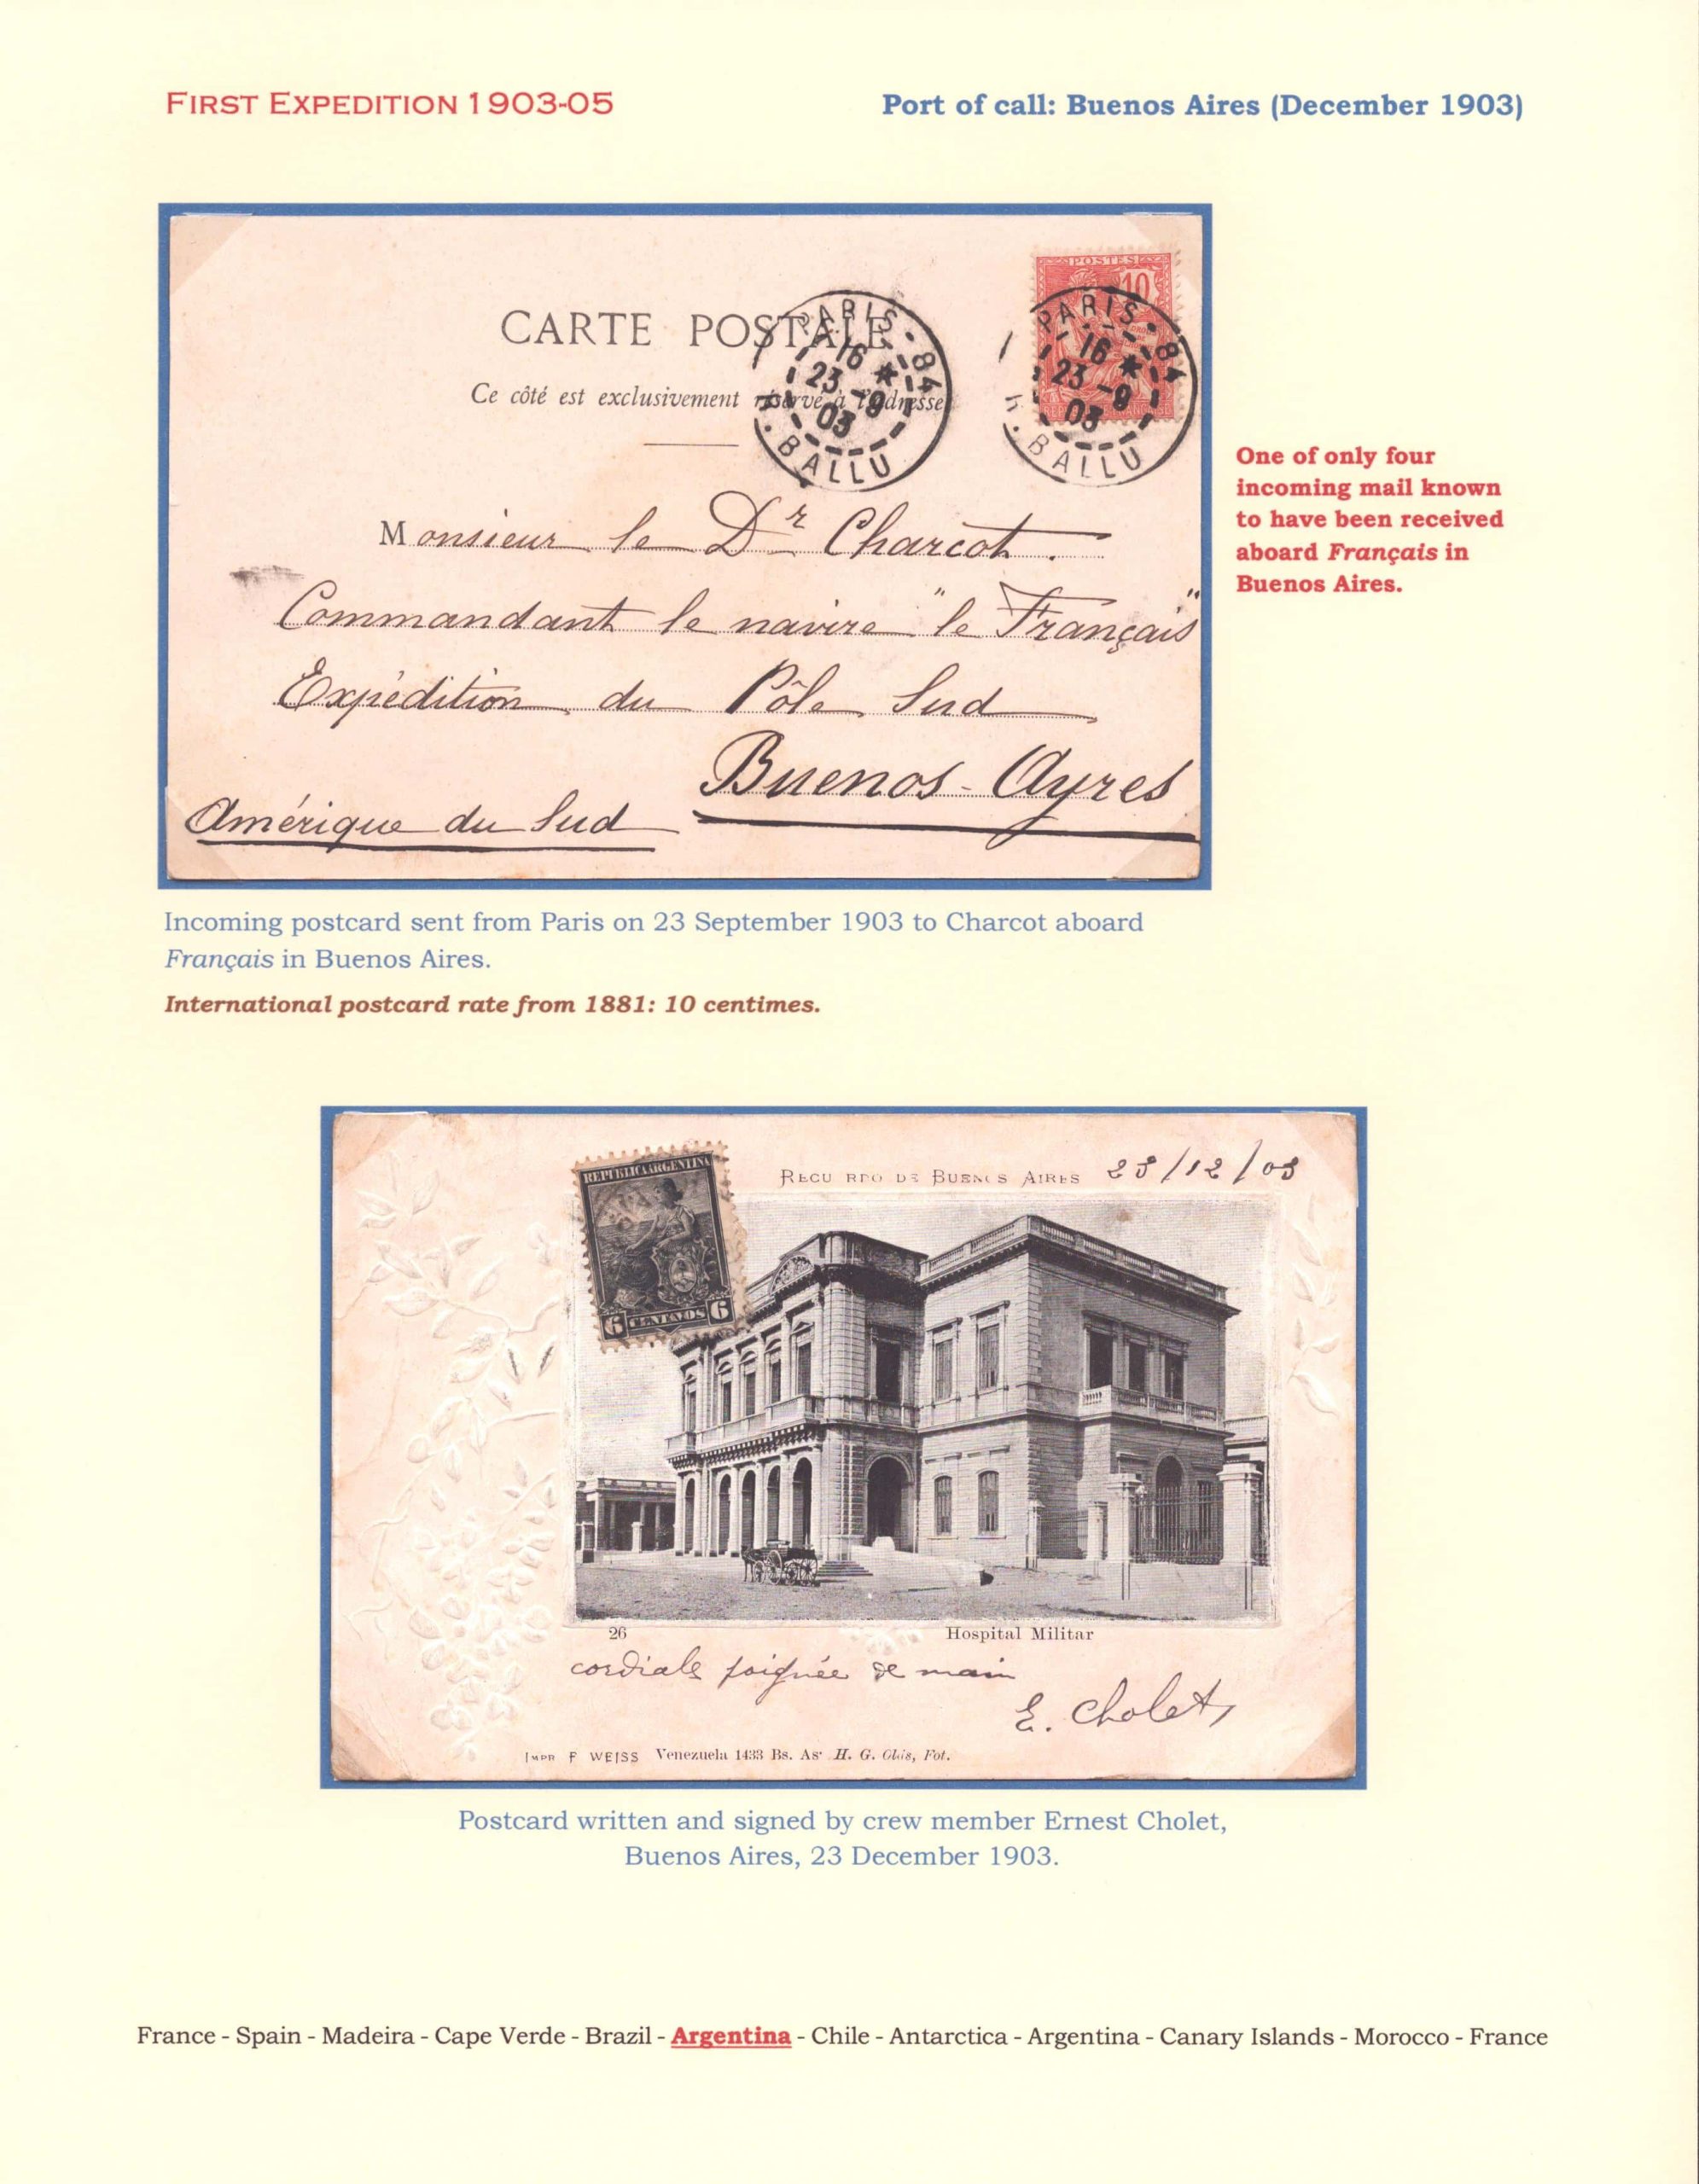 FIRST EXPEDITION 1903-05
Port of call: Buenos Aires (December 1903)
POSTES
10
CARTE POSTALE
Ce côté est exclusivement réservé à l'adresse
PARIS - 84
16 *
23 - 9
03
R. BALLU
PARIS - 84
16 *
23 - 9
03
R. BALLU
One of only four
incoming mail known
to have been received
aboard Français in
Buenos Aires.
Monsieur le Dr Charcot.
Commandant le navire "le Français"
Expédition du Pôle Sud
Buenos-Ayres
Amérique du Sud
Incoming postcard sent from Paris on 23 September 1903 to Charcot aboard
Français in Buenos Aires.
International postcard rate from 1881: 10 centimes.
REPUBLICA ARGENTINA
6 CENTAVOS 6
RECUERDO DE BUENOS AIRES 23/12/03
26
Hospital Militar
cordiale poignée de main
E. Cholet
IMPR F WEISS Venezuela 1433 Bs. As. H. G. Fot.
Postcard written and signed by crew member Ernest Cholet,
Buenos Aires, 23 December 1903.
France - Spain - Madeira - Cape Verde - Brazil - Argentina - Chile - Antarctica - Argentina - Canary Islands - Morocco - France